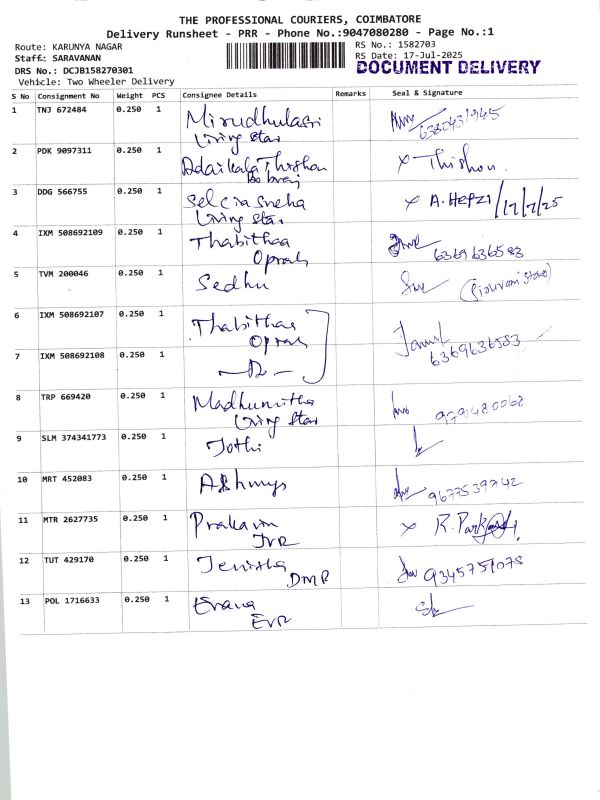 THE PROFESSIONAL COURIERS, COIMBATORE
Delivery Runsheet - PRR - Phone No.:9047080280 - Page No.:1
Route: KARUNYA NAGAR
RS No.: 1582703
Staff: SARAVANAN
RS Date: 17-Jul-2025
DRS No.: DCJB158270301
DOCUMENT DELIVERY
Vehicle: Two Wheeler Delivery
S No Consignment No Weight PCS Consignee Details Remarks Seal & Signature
1 TNJ 672484 0.250 1 Mirudhulasri
Living Star
2 PDK 9097311 0.250 1 Adaikala Thishon x Thishon.
3 DDG 566755 0.250 1 Selcia Sneha x A. HEPZI /17/7/25
Living Star
4 IXM 508692109 0.250 1 Thabithaa
Oprah 6369636583
5 TVM 200046 0.250 1 Sedhu (Siruvani Store)
6 IXM 508692107 0.250 1 Thabithaa
Oprah 6369636583
7 IXM 508692108 0.250 1 -Do-
8 TRP 669420 0.250 1 Madhumitha
Living Star 9791480068
9 SLM 374341773 0.250 1 Jothi
10 MRT 452083 0.250 1 9677539742
11 MTR 2627735 0.250 1 x R.
JVR
12 TUT 429170 0.250 1 Jenisha 9345751078
DMR
13 POL 1716633 0.250 1
EVR